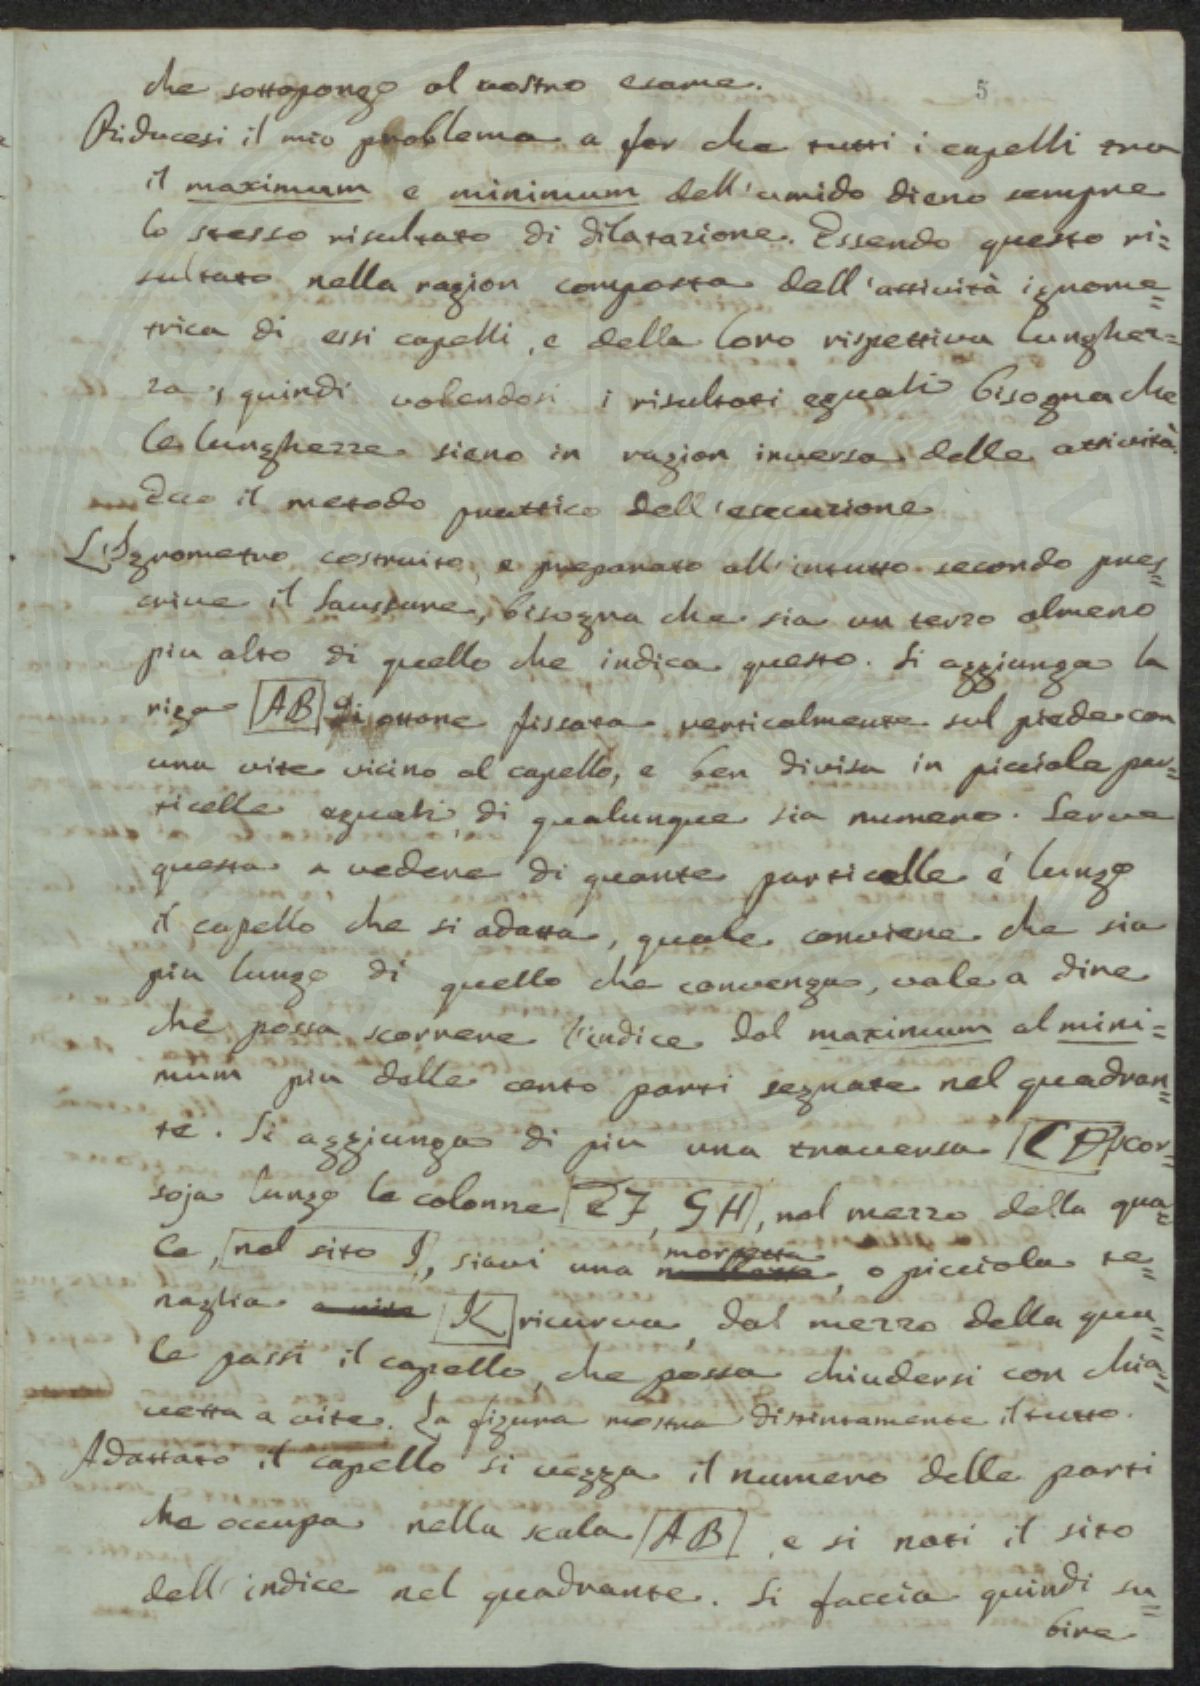 5
che sottopongo al vostro esame.
Riducesi il mio problema a far che tutti i capelli tra
il maximum e minimum dell'umido dieno sempre
lo stesso risultato di dilatazione. Essendo questo ri=
sultato nella ragion composta dell'attività igrome=
trica di essi capelli, e della loro rispettiva lunghez=
za, quindi volendosi i risultati eguali bisogna che
le lunghezze sieno in ragion inversa delle attività.
Ecco il metodo prattico dell'esecuzione
L'Igrometro costruito, e preparato all'intutto secondo pres=
crive il Saussure, bisogna che sia un terzo almeno
piu alto di quello che indica questo. Si aggiunga la
riga AB di ottone fissata verticalmente sul piede con
una vite vicino al capello, e ben divisa in picciole par=
ticelle eguali di qualunque sia numero. Serve
questa a vedere di quante particelle é lungo
il capello che si adatta, quale conviene che sia
piu lungo di quello che convenga, vale a dire
che possa scorrere l'indice dal maximum al mini=
mum piu delle cento parti segnate nel quadran=
te. Si aggiunga di piu una traversa CD scor=
soja lungo le colonne EF, GH, nel mezzo della qua=
le, nel sito I, siavi una morsetta, o picciola te=
naglia a vite K ricurva, dal mezzo della qua=
le passi il capello, che possa chiudersi con chia=
vetta a vite. La figura mostra distintamente il tutto.
Adattato il capello si vegga il numero delle parti
che occupa nella scala AB, e si noti il sito
dell'indice nel quadrante. Si faccia quindi su=
bire